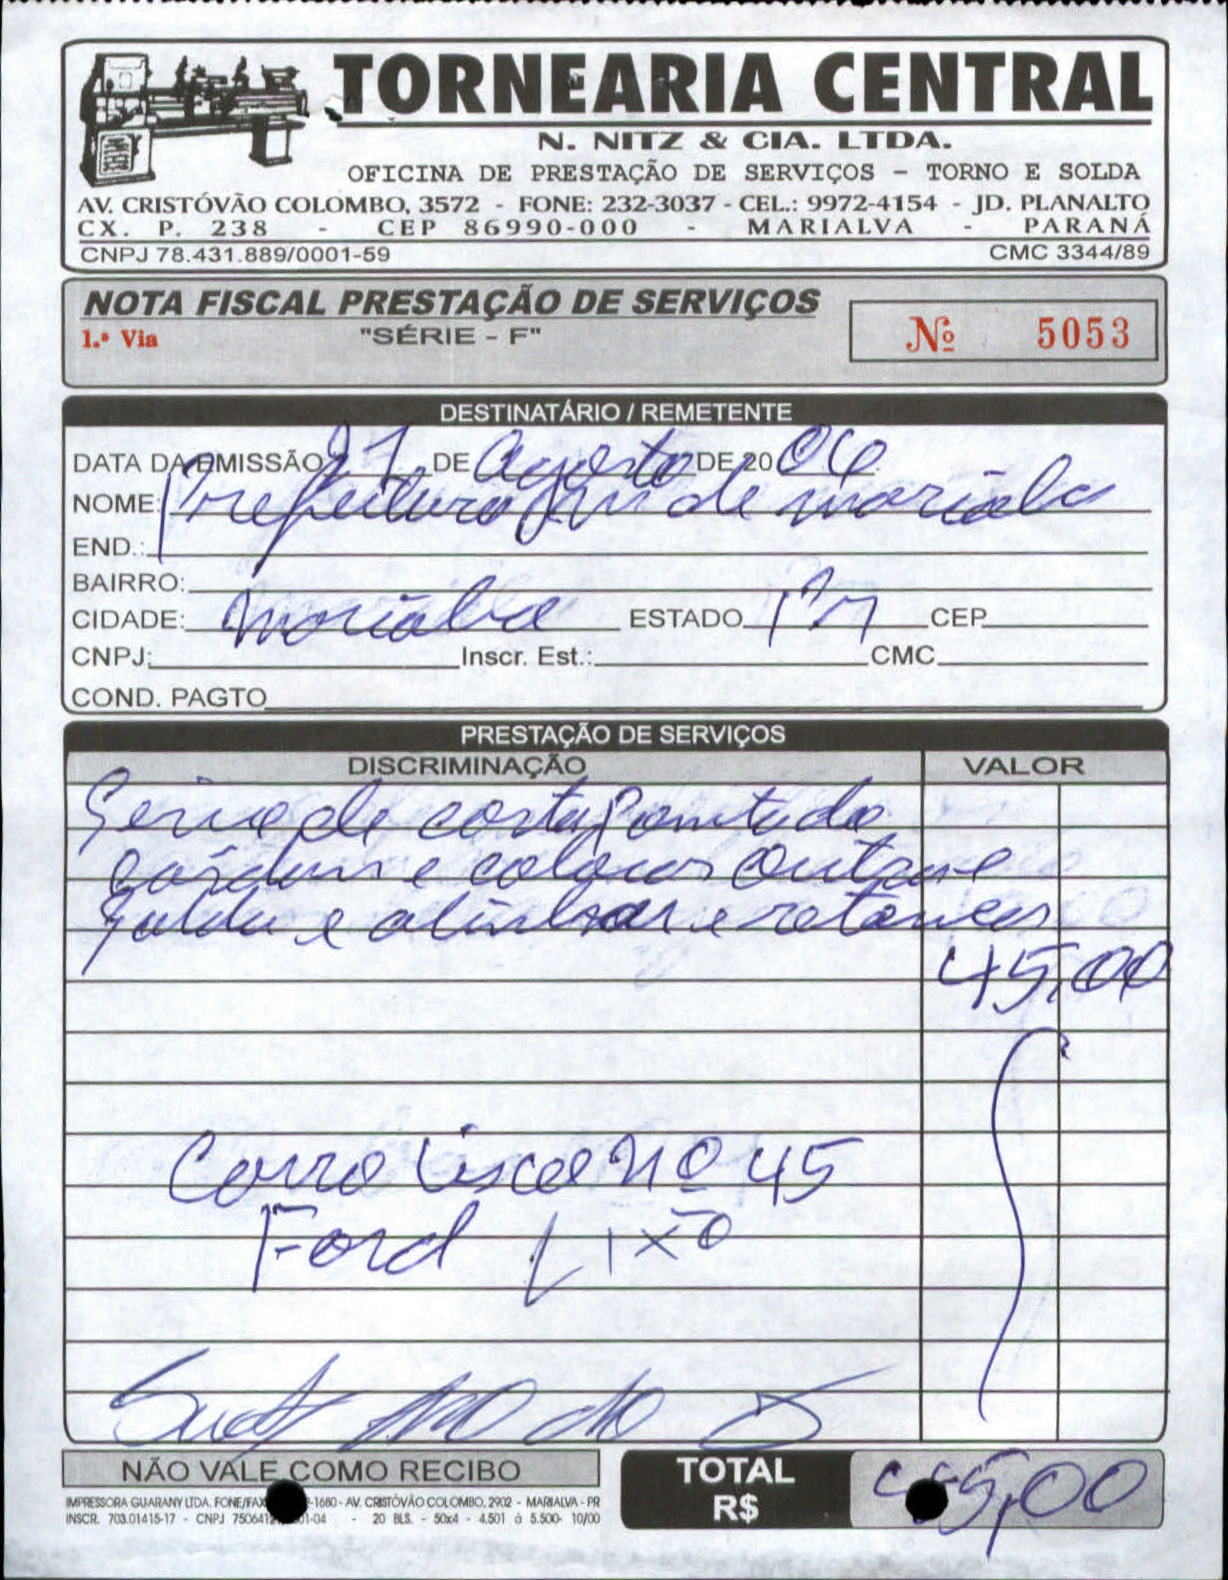 TORNEARIA CENTRAL
N. NITZ & CIA. LTDA.
OFICINA DE PRESTAÇÃO DE SERVIÇOS - TORNO E SOLDA
AV. CRISTÓVÃO COLOMBO, 3572 - FONE: 232-3037 - CEL.: 9972-4154 - JD. PLANALTO
CX. P. 238 - CEP 86990-000 - MARIALVA - PARANÁ
CNPJ 78.431.889/0001-59 CMC 3344/89
NOTA FISCAL PRESTAÇÃO DE SERVIÇOS
1.ª Via "SÉRIE - F" Nº 5053
DESTINATÁRIO / REMETENTE
DATA DA EMISSÃO DE Agosto DE 20
NOME: Prefeitura de marialva
END.:
BAIRRO:
CIDADE: Marialva ESTADO CEP
CNPJ: Inscr. Est.: CMC
COND. PAGTO
PRESTAÇÃO DE SERVIÇOS
DISCRIMINAÇÃO VALOR
de corta Ponta do
e colocar
e alinhar e
45,00
Carro nº 45
Ford Lixo
NÃO VALE COMO RECIBO
TOTAL R$ 45,00
IMPRESSORA GUARANY LTDA. FONE/FAX -1680 - AV. CRISTÓVÃO COLOMBO, 2902 - MARIALVA - PR
INSCR. 703.01415-17 - CNPJ 01-04 - 20 BLS. - 50x4 - 4.501 à 5.500- 10/00